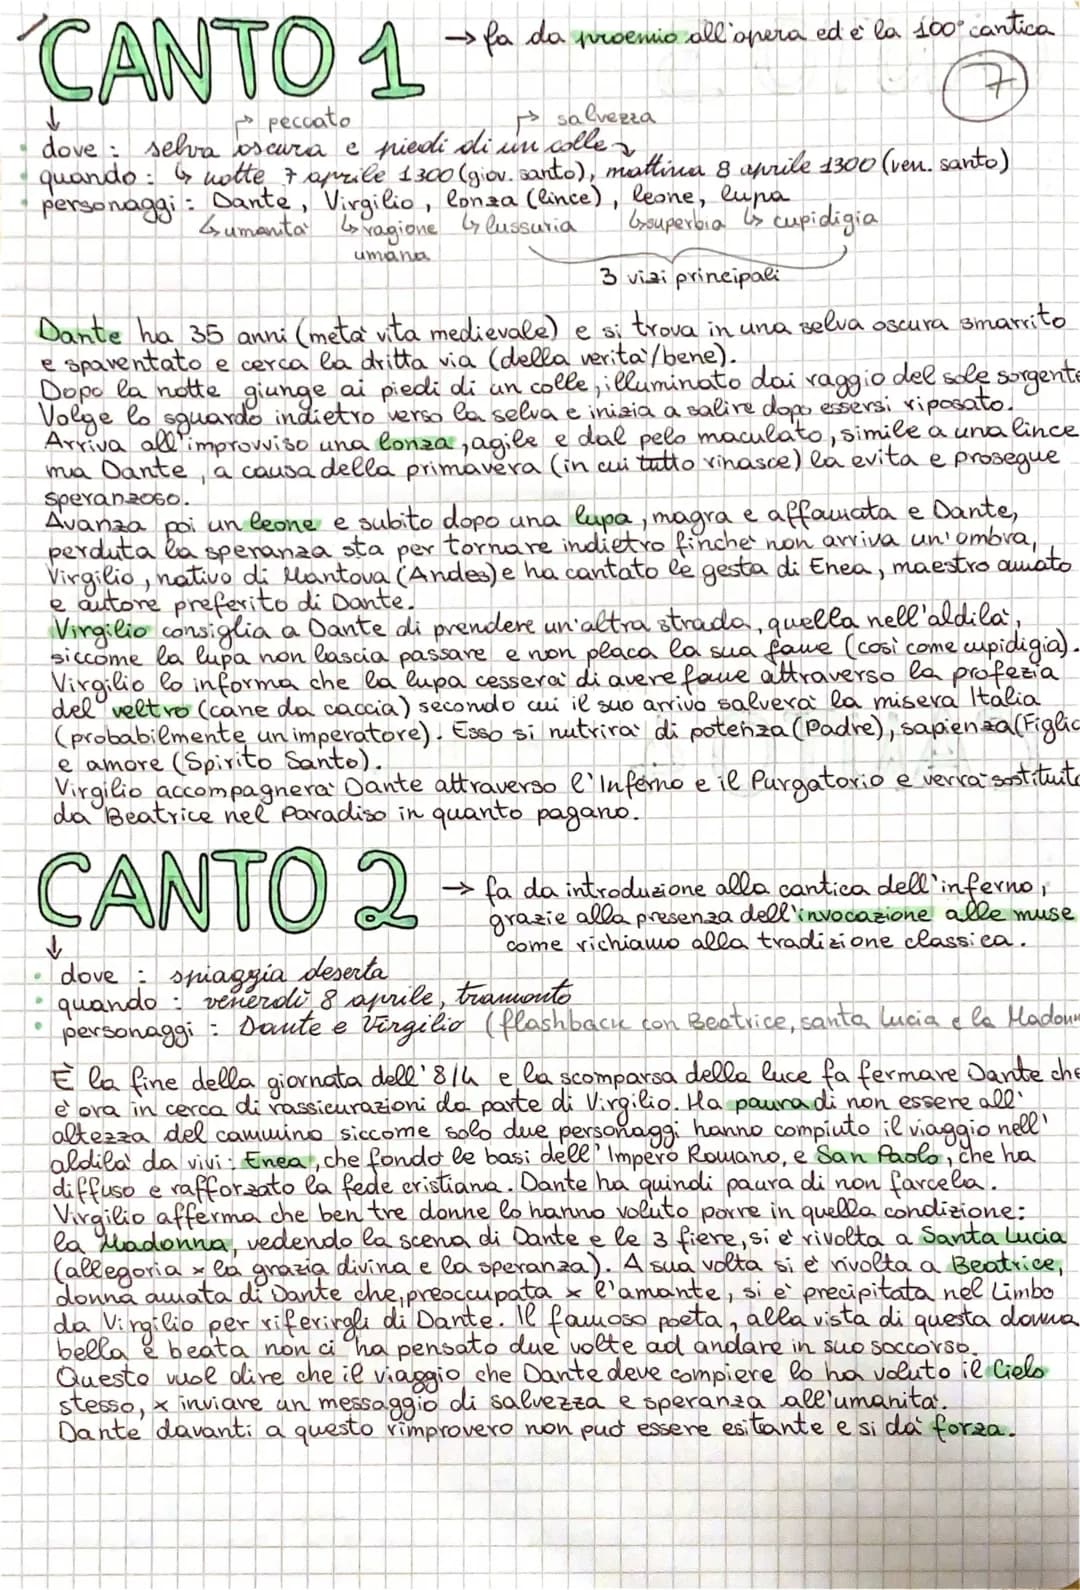 CANTO 1 → fa da proemio all'opera ed è la 100° cantica
7
↓ ↱ peccato ↱ salvezza
• dove : selva oscura e piedi di un colle
• quando : ↳ notte 7 aprile 1300 (giov. santo), mattina 8 aprile 1300 (ven. santo)
• personaggi : Dante, Virgilio, lonza (lince), leone, lupa
↳ umanità ↳ ragione umana ↳ lussuria ↳ superbia ↳ cupidigia
3 vizi principali
Dante ha 35 anni (metà vita medievale) e si trova in una selva oscura smarrito
e spaventato e cerca la dritta via (della verità/bene).
Dopo la notte giunge ai piedi di un colle, illuminato dai raggio del sole sorgente
Volge lo sguardo indietro verso la selva e inizia a salire dopo essersi riposato.
Arriva all'improvviso una lonza, agile e dal pelo maculato, simile a una lince
ma Dante, a causa della primavera (in cui tutto rinasce) la evita e prosegue
speranzoso.
Avanza poi un leone e subito dopo una lupa, magra e affamata e Dante,
perduta la speranza sta per tornare indietro finchè non arriva un'ombra,
Virgilio, nativo di Mantova (Andes) e ha cantato le gesta di Enea, maestro amato
e autore preferito di Dante.
Virgilio consiglia a Dante di prendere un'altra strada, quella nell'aldilà,
siccome la lupa non lascia passare e non placa la sua fame (così come cupidigia).
Virgilio lo informa che la lupa cesserà di avere fame attraverso la profezia
del veltro (cane da caccia) secondo cui il suo arrivo salverà la misera Italia
(probabilmente un imperatore). Esso si nutrirà di potenza (Padre), sapienza (Figlio
e amore (Spirito Santo).
Virgilio accompagnerà Dante attraverso l'Inferno e il Purgatorio e verrà sostituito
da Beatrice nel Paradiso in quanto pagano.
CANTO 2 → fa da introduzione alla cantica dell'inferno,
grazie alla presenza dell'invocazione alle muse
come richiamo alla tradizione classica.
↓
• dove : spiaggia deserta
• quando : venerdì 8 aprile, tramonto
• personaggi : Dante e Virgilio (flashback con Beatrice, santa Lucia e la Madonn
È la fine della giornata dell'8/4 e la scomparsa della luce fa fermare Dante che
è ora in cerca di rassicurazioni da parte di Virgilio. Ha paura di non essere all'
altezza del cammino siccome solo due personaggi hanno compiuto il viaggio nell'
aldilà da vivi: Enea, che fondò le basi dell'Impero Romano, e San Paolo, che ha
diffuso e rafforzato la fede cristiana. Dante ha quindi paura di non farcela.
Virgilio afferma che ben tre donne lo hanno voluto porre in quella condizione:
la Madonna, vedendo la scena di Dante e le 3 fiere, si è rivolta a Santa Lucia
(allegoria x la grazia divina e la speranza). A sua volta si è rivolta a Beatrice,
donna amata di Dante che, preoccupata x l'amante, si è precipitata nel Limbo
da Virgilio per riferirgli di Dante. Il famoso poeta, alla vista di questa donna
bella e beata non ci ha pensato due volte ad andare in suo soccorso.
Questo vuol dire che il viaggio che Dante deve compiere lo ha voluto il Cielo
stesso, x inviare un messaggio di salvezza e speranza all'umanità.
Dante davanti a questo rimprovero non può essere esitante e si dà forza.